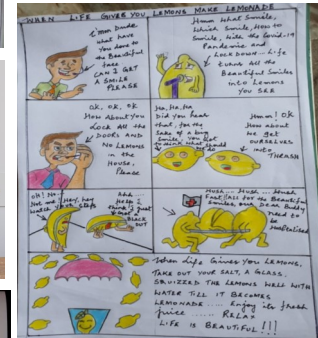 WHEN LIFE GIVES YOU LEMONS MAKE LEMONADE
Hmm Dude
what have
you done to
the Beautiful
face
CAN I GET
A SMILE
PLEASE
Hmmm What Smile,
Which Smile, How to
Smile, With the Covid-19
Pandemic and
LOCK DOWN.. Life
turns all the
Beautiful Smiles
into Lemons
YOU SEE
OK, OK, OK
How About you
Lock All the
DOORS AND
NO LEMONS
in the
House,
Please
Ha, Ha, Ha
Did you hear
that, for the
sake of a
Smile, you
to think what should
Hmm! OK
How about
We get
OURSELVES
into
THRASH
Oh! No!
Not me! Hey, hey
Watch your steps
Ahh...
Help I
think I just
a
BLACK
OUT
Hush... Hush... Hush
Fast, call for the Beautiful
Smiles our Dear Buddy
need to
be
When Life Gives You LEMONS,
TAKE OUT YOUR SALT, A GLASS.
SQUIZZED THE LEMONS WELL WITH
WATER TILL IT BECOMES
LEMONADE..... Enjoy its fresh
juice...... RELAX
LIFE IS BEAUTIFUL!!!